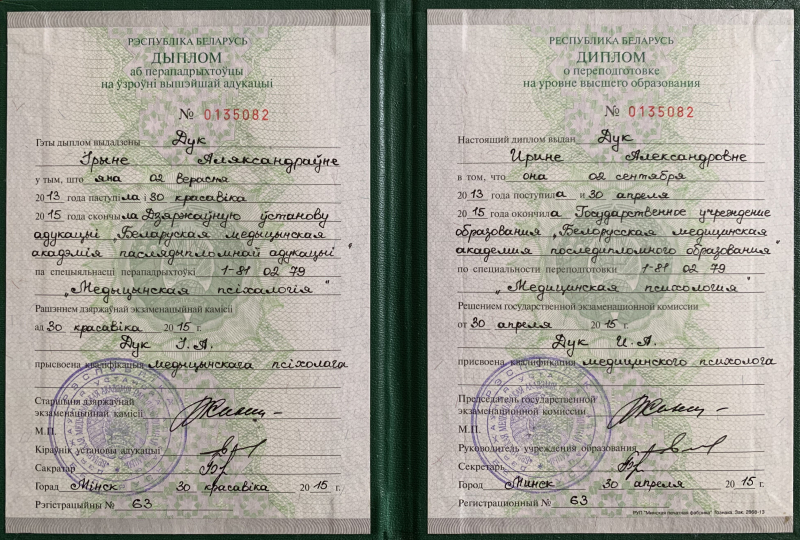 РЭСПУБЛІКА БЕЛАРУСЬ
ДЫПЛОМ
аб перападрыхтоўцы
на ўзроўні вышэйшай адукацыі
№ 0135082
Гэты дыплом выдадзены Дук
Ірыне Аляксандраўне
у тым, што яна 02 верасня
2013 года паступіла і 30 красавіка
2015 года скончыла Дзяржаўную ўстанову
адукацыі „Беларуская медыцынская
акадэмія паслядыпломнай адукацыі"
па спецыяльнасці перападрыхтоўкі 1-81 02 79
„Медыцынская псіхалогія"
Рашэннем дзяржаўнай экзаменацыйнай камісіі
ад 30 красавіка 2015 г.
Дук І.А.
прысвоена кваліфікацыя медыцынскага псіхолага
Старшыня дзяржаўнай
экзаменацыйнай камісіі
М.П.
Кіраўнік установы адукацыі
Сакратар
Горад Мінск 30 красавіка 2015 г.
Рэгістрацыйны № 63
РЕСПУБЛИКА БЕЛАРУСЬ
ДИПЛОМ
о переподготовке
на уровне высшего образования
№ 0135082
Настоящий диплом выдан Дук
Ирине Александровне
в том, что она 02 сентября
2013 года поступила и 30 апреля
2015 года окончила Государственное учреждение
образования „Белорусская медицинская
академия последипломного образования"
по специальности переподготовки 1-81 02 79
„Медицинская психология"
Решением государственной экзаменационной комиссии
от 30 апреля 2015 г.
Дук И.А.
присвоена квалификация медицинского психолога
Председатель государственной
экзаменационной комиссии
М.П.
Руководитель учреждения образования
Секретарь
Город Минск 30 апреля 2015 г.
Регистрационный № 63
РУП "Минская печатная фабрика" Гознака. Зак. 2968-13